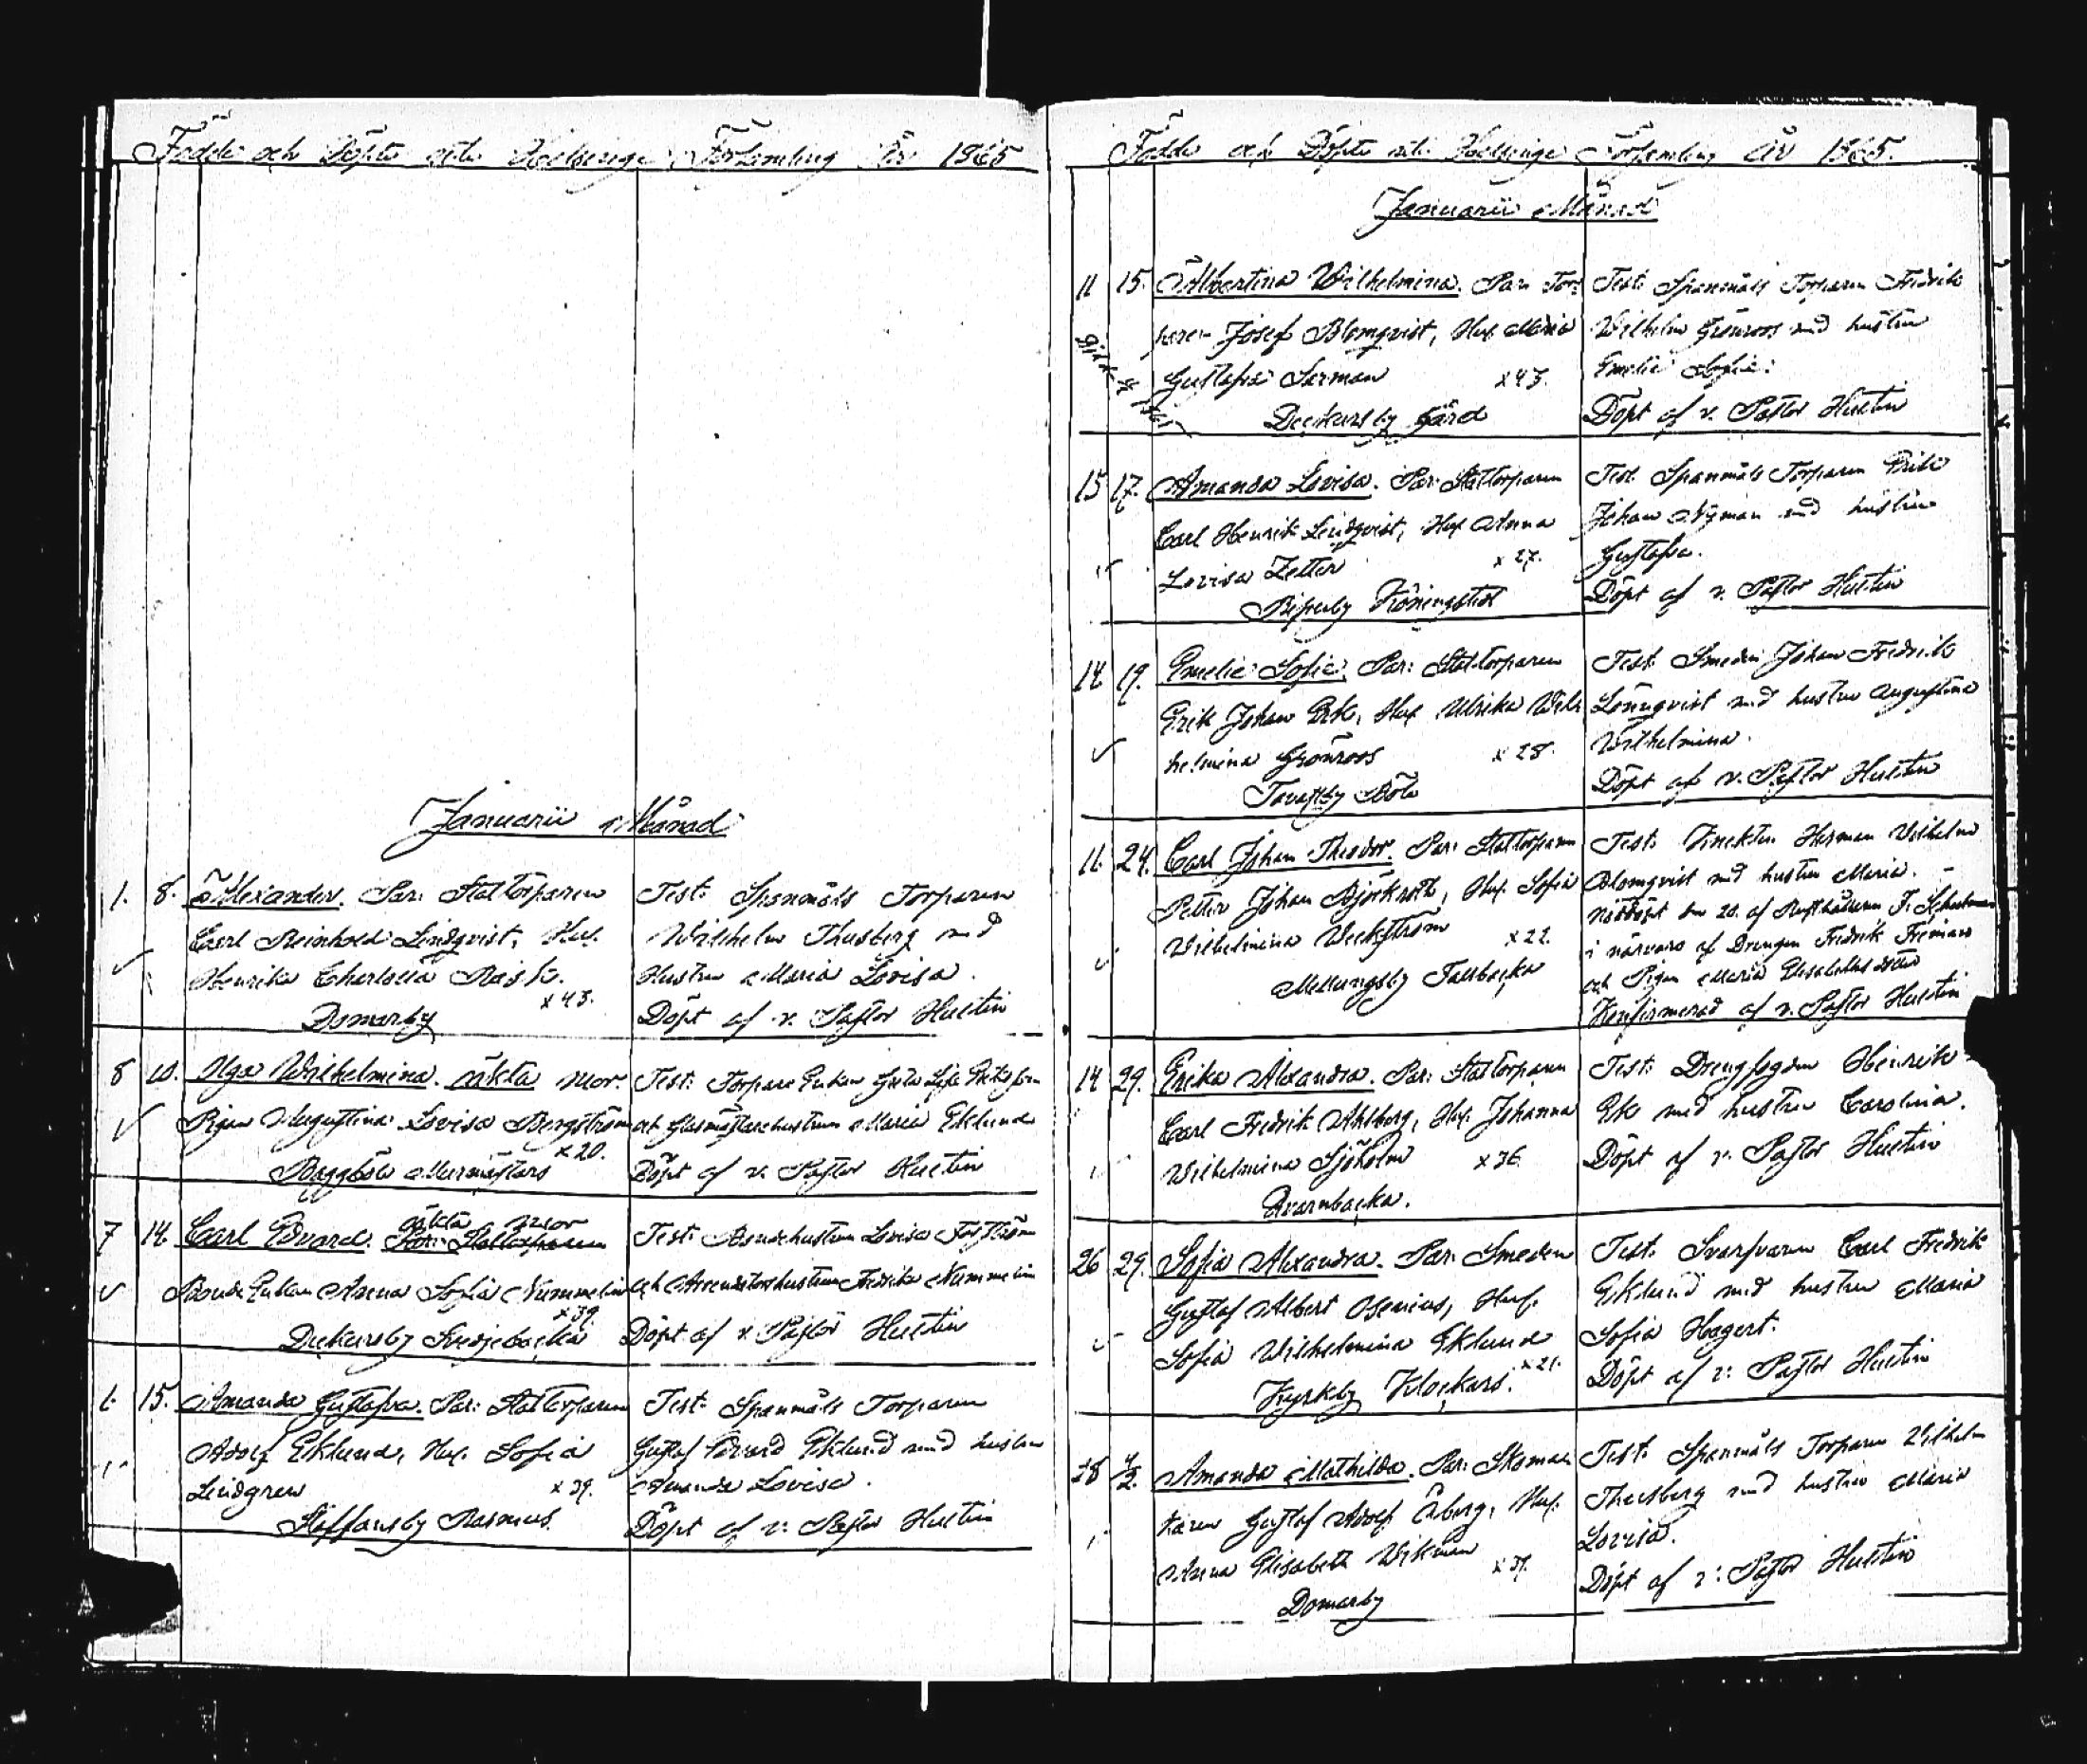 Födde och Döpte uti Helsinge Församling År 1865
Januarii Månad
1. 8. Alexander. Par: Stattorparen
Carl Reinhold Lindqvist, Hus.
Henrika Charlotta Rask.
x 43.
Domarby
Test: Spanmåls Torparen
Wilhelm Thusberg med
Hustru Maria Lovisa.
Döpt af v. Pastor Hultin
8 10. Olga Wilhelmina. oäkta Mor:
Pigan Augustina Lovisa Bergström
x 20.
Baggböle Murmästars
Test: Torpare Enkan Greta Lisa
och Glasmästarehustrun Maria Eklund
Döpt af v. Pastor Hultin
7 14. Carl Edvard. oäkta Mor
Par: Stattorparen
Bonde Enkan Anna Sofia Nummelin
x 39.
Dickursby Smedjebacka
Test: Bondehustrun Lovisa Forsström
och Arrendatorshustrun Fredrika Nummelin
Döpt af v. Pastor Hultin
1. 15. Amanda Gustafva. Par: Stattorparen
Adolf Eklund, Hus. Sofia
Lindgren
x 39.
Staffansby Rasmus.
Test: Spanmåls Torparen
Gustaf Edvard Eklund med hustru
Amanda Lovisa.
Döpt af v. Pastor Hultin
Födde och Döpte uti Helsinge Församling År 1865.
Januarii Månad
11 15. Albertina Wilhelmina. Par: Tor-
paren Josef Blomqvist, Hus. Maria
Gustafva Serman
x 43.
Dickursby gård
Test: Spanmåls Torparen Fredrik
Wilhelm Grönroos med hustru
Emelie Sofia.
Döpt af v. Pastor Hultin
15 17. Amanda Lovisa. Par: Stattorparen
Carl Henrik Lindqvist, Hus. Anna
Lovisa Zetter
x 27.
Ripuby Köningstedt
Test: Spanmåls Torparen Erik
Johan Nyman med hustru
Gustafva.
Döpt af v. Pastor Hultin
14 19. Emelie Sofia. Par: Stattorparen
Erik Johan Ek, Hus. Ulrika Wil-
helmina Grönroos
x 28.
Tavastby Böle
Test: Smeden Johan Fredrik
Lönnqvist med hustru Augustina
Wilhelmina.
Döpt af v. Pastor Hultin
11. 24. Carl Johan Theodor. Par: Stattorparen
Petter Johan Björkroth, Hus. Sofia
Wilhelmina Weckström
x 22.
Mellungsby Tallbacka
Test: Knekten Herman Wilhelm
Blomqvist med hustru Maria.
Nöddöpt den 20. af Rusthållaren F.
i närvaro af Drengen Fredrik Friman
och Pigan Maria Elisabethsdotter
Konfirmerad af v. Pastor Hultin
14 29. Erika Alexandra. Par: Stattorparen
Carl Fredrik Ahlberg, Hus. Johanna
Wilhelmina Sjöholm
x 36
Qvarnbacka.
Test: Drengfogden Henrik
Ek med hustru Carolina.
Döpt af v. Pastor Hultin
26 29. Sofia Alexandra. Par: Smeden
Gustaf Albert Osenius, Hus.
Sofia Wilhelmina Eklund
x 21.
Kyrkby Klockars.
Test: Svarfvaren Carl Fredrik
Eklund med hustru Maria
Sofia Hagert.
Döpt af v. Pastor Hultin
18 4/2. Amanda Mathilda. Par: Skoma-
karen Gustaf Adolf Öberg, Hus.
Anna Elisabeth Wikman
x 37.
Domarby
Test: Spanmåls Torparen Wilhelm
Thusberg med hustru Maria
Lovisa.
Döpt af v. Pastor Hultin